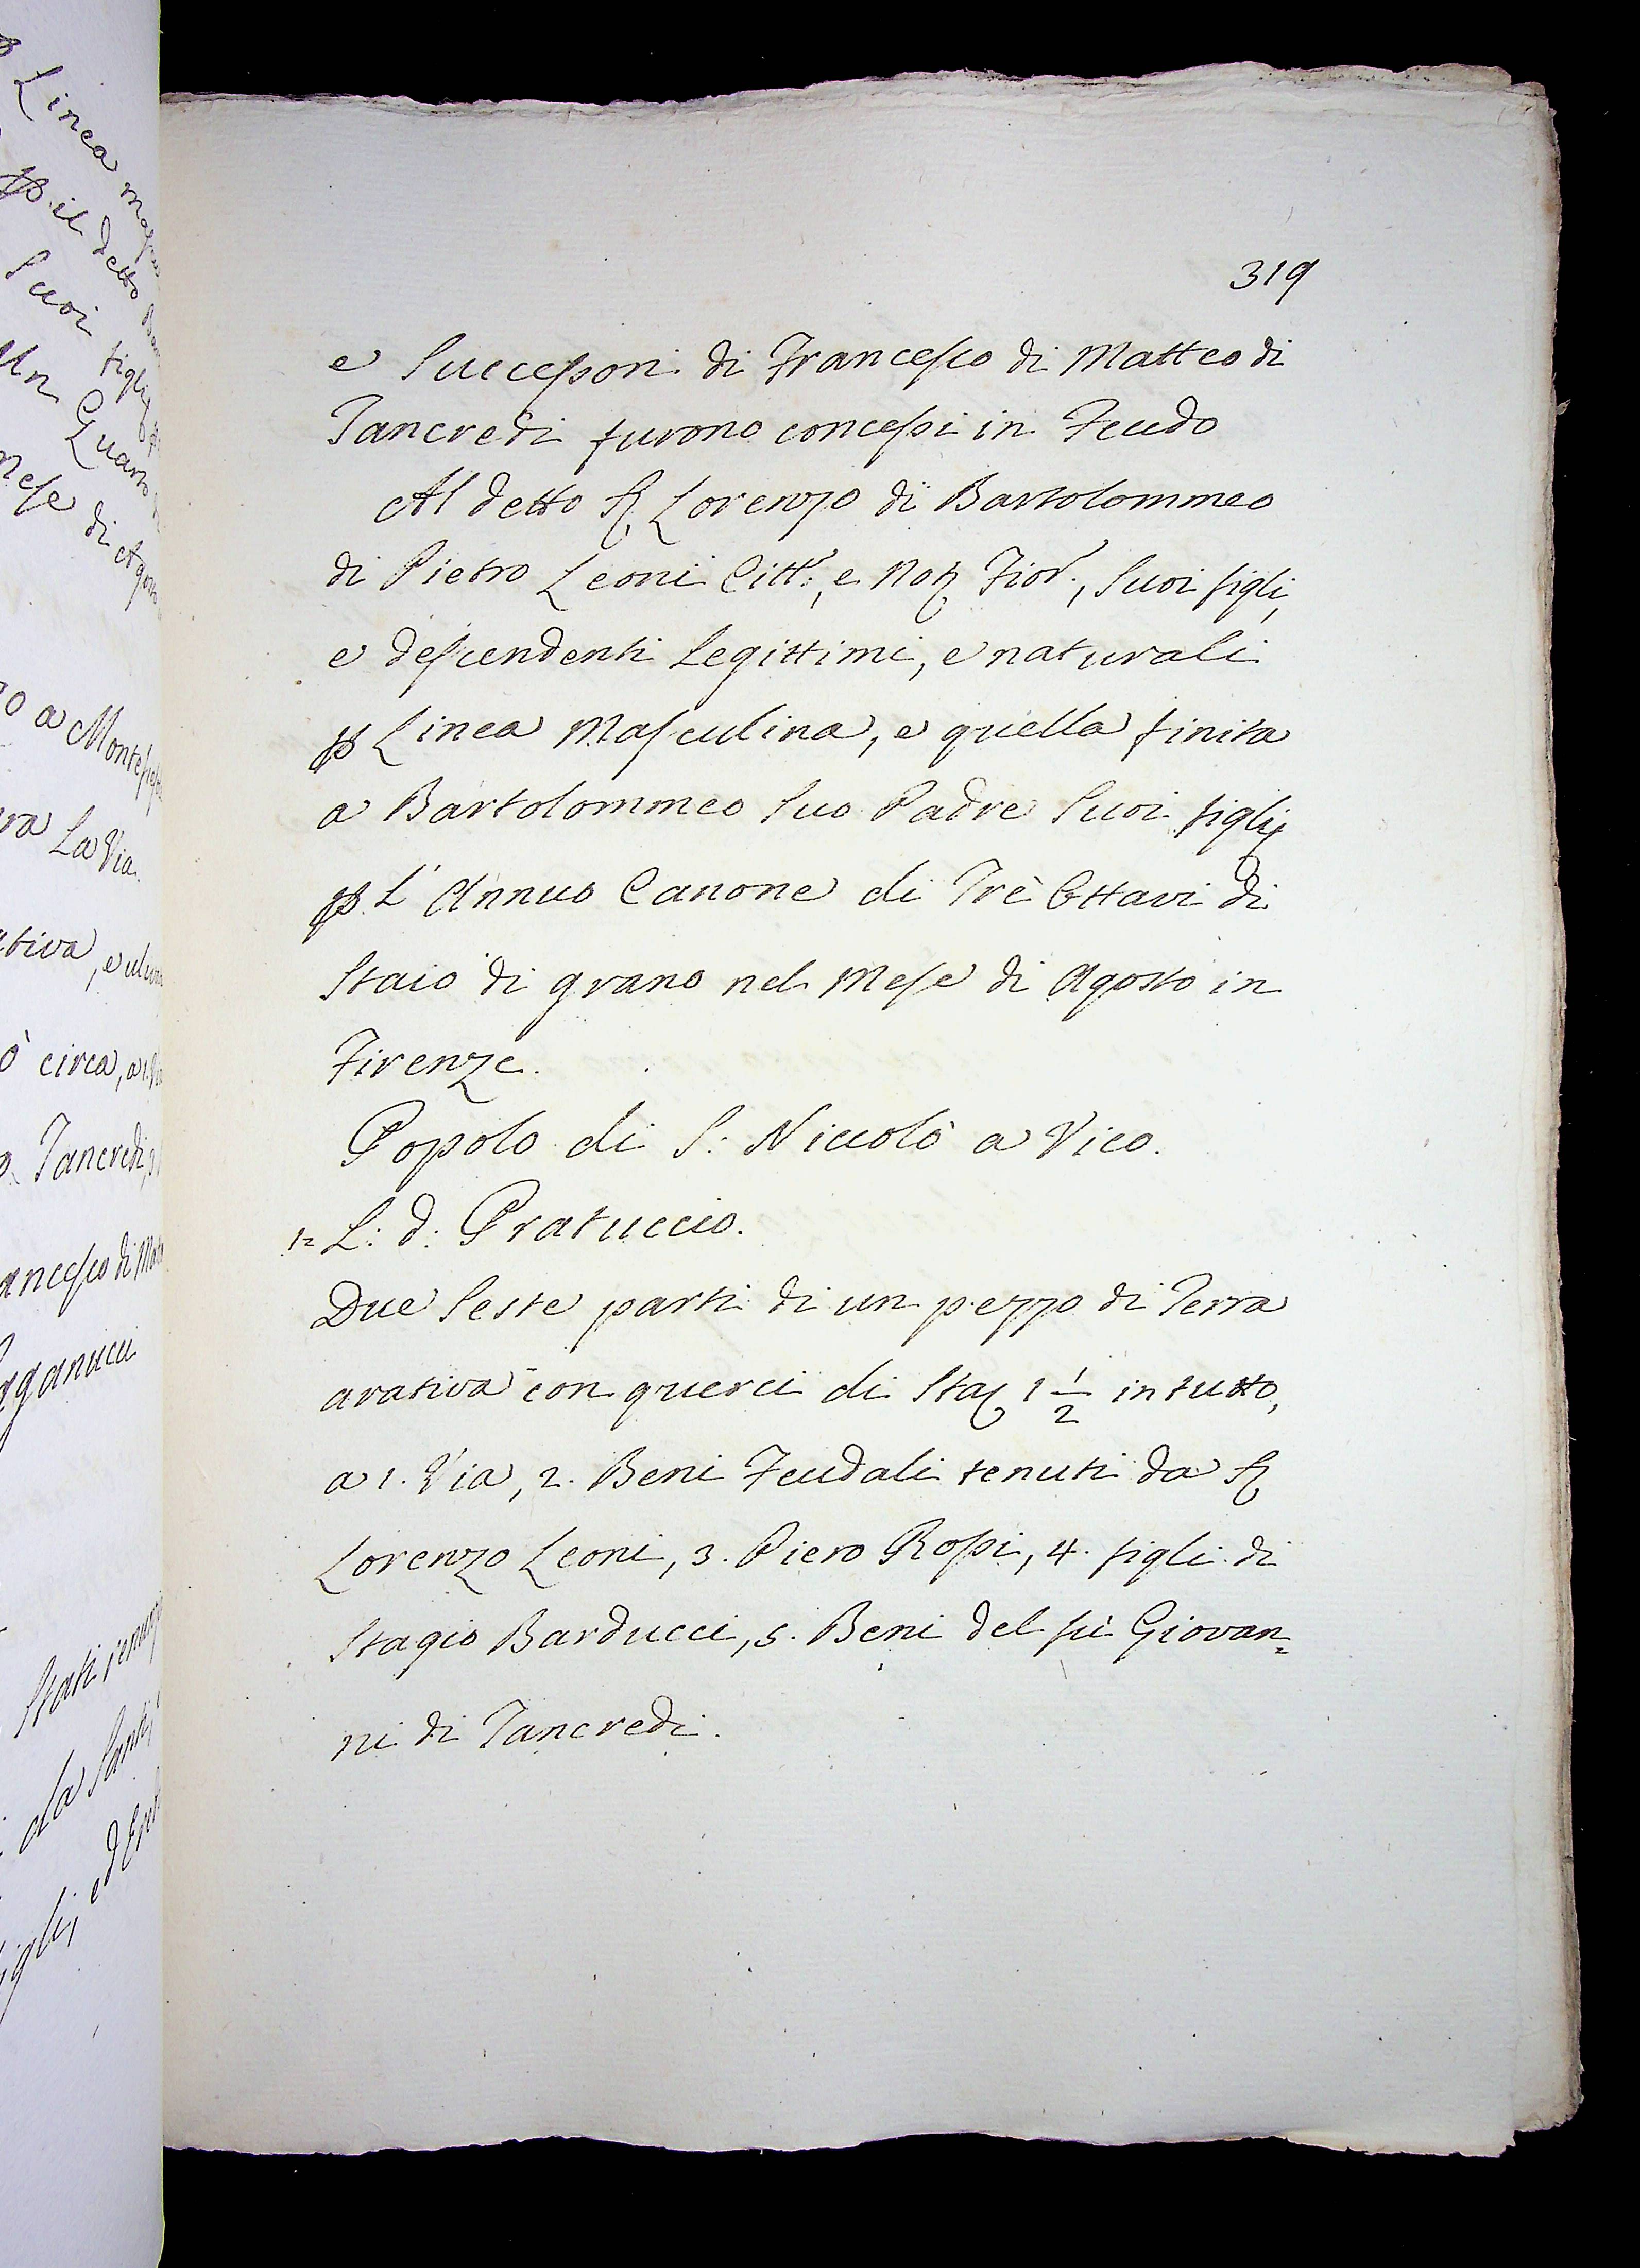 319
e Successori di Francesco di Matteo di
Tancredi furono concessi in Feudo
Al detto S. Lorenzo di Bartolommeo
di Pietro Leoni Citt:, e Not. Fior., Suoi figli,
e descendenti Legittimi, e naturali
p Linea Masculina, e quella finita
a Bartolommeo Suo Padre Suoi figlij
p L' Annuo Canone di Trè Ottavi di
Staio di grano nel Mese di Agosto in
Firenze.
Popolo di S: Niccolò a Vico.
1= L: d: Pratuccio.
Due Seste parti di un pezzo di Terra
arativa con querci di Sta. 1 1/2 in tutto,
a 1. Via, 2. Beni Feudali tenuti da S.
Lorenzo Leoni, 3. Piero Rossi, 4. figli di
Stagio Barducci, 5. Beni del fù Giovan=
ni di Tancredi.
Linea
p il detto
Suoi figlij
Un Quarto
Mese di Agosto
a Monte
La Via
circa, a 1. Via
Tancredi,
ancesco di
Stati
da
igli, e